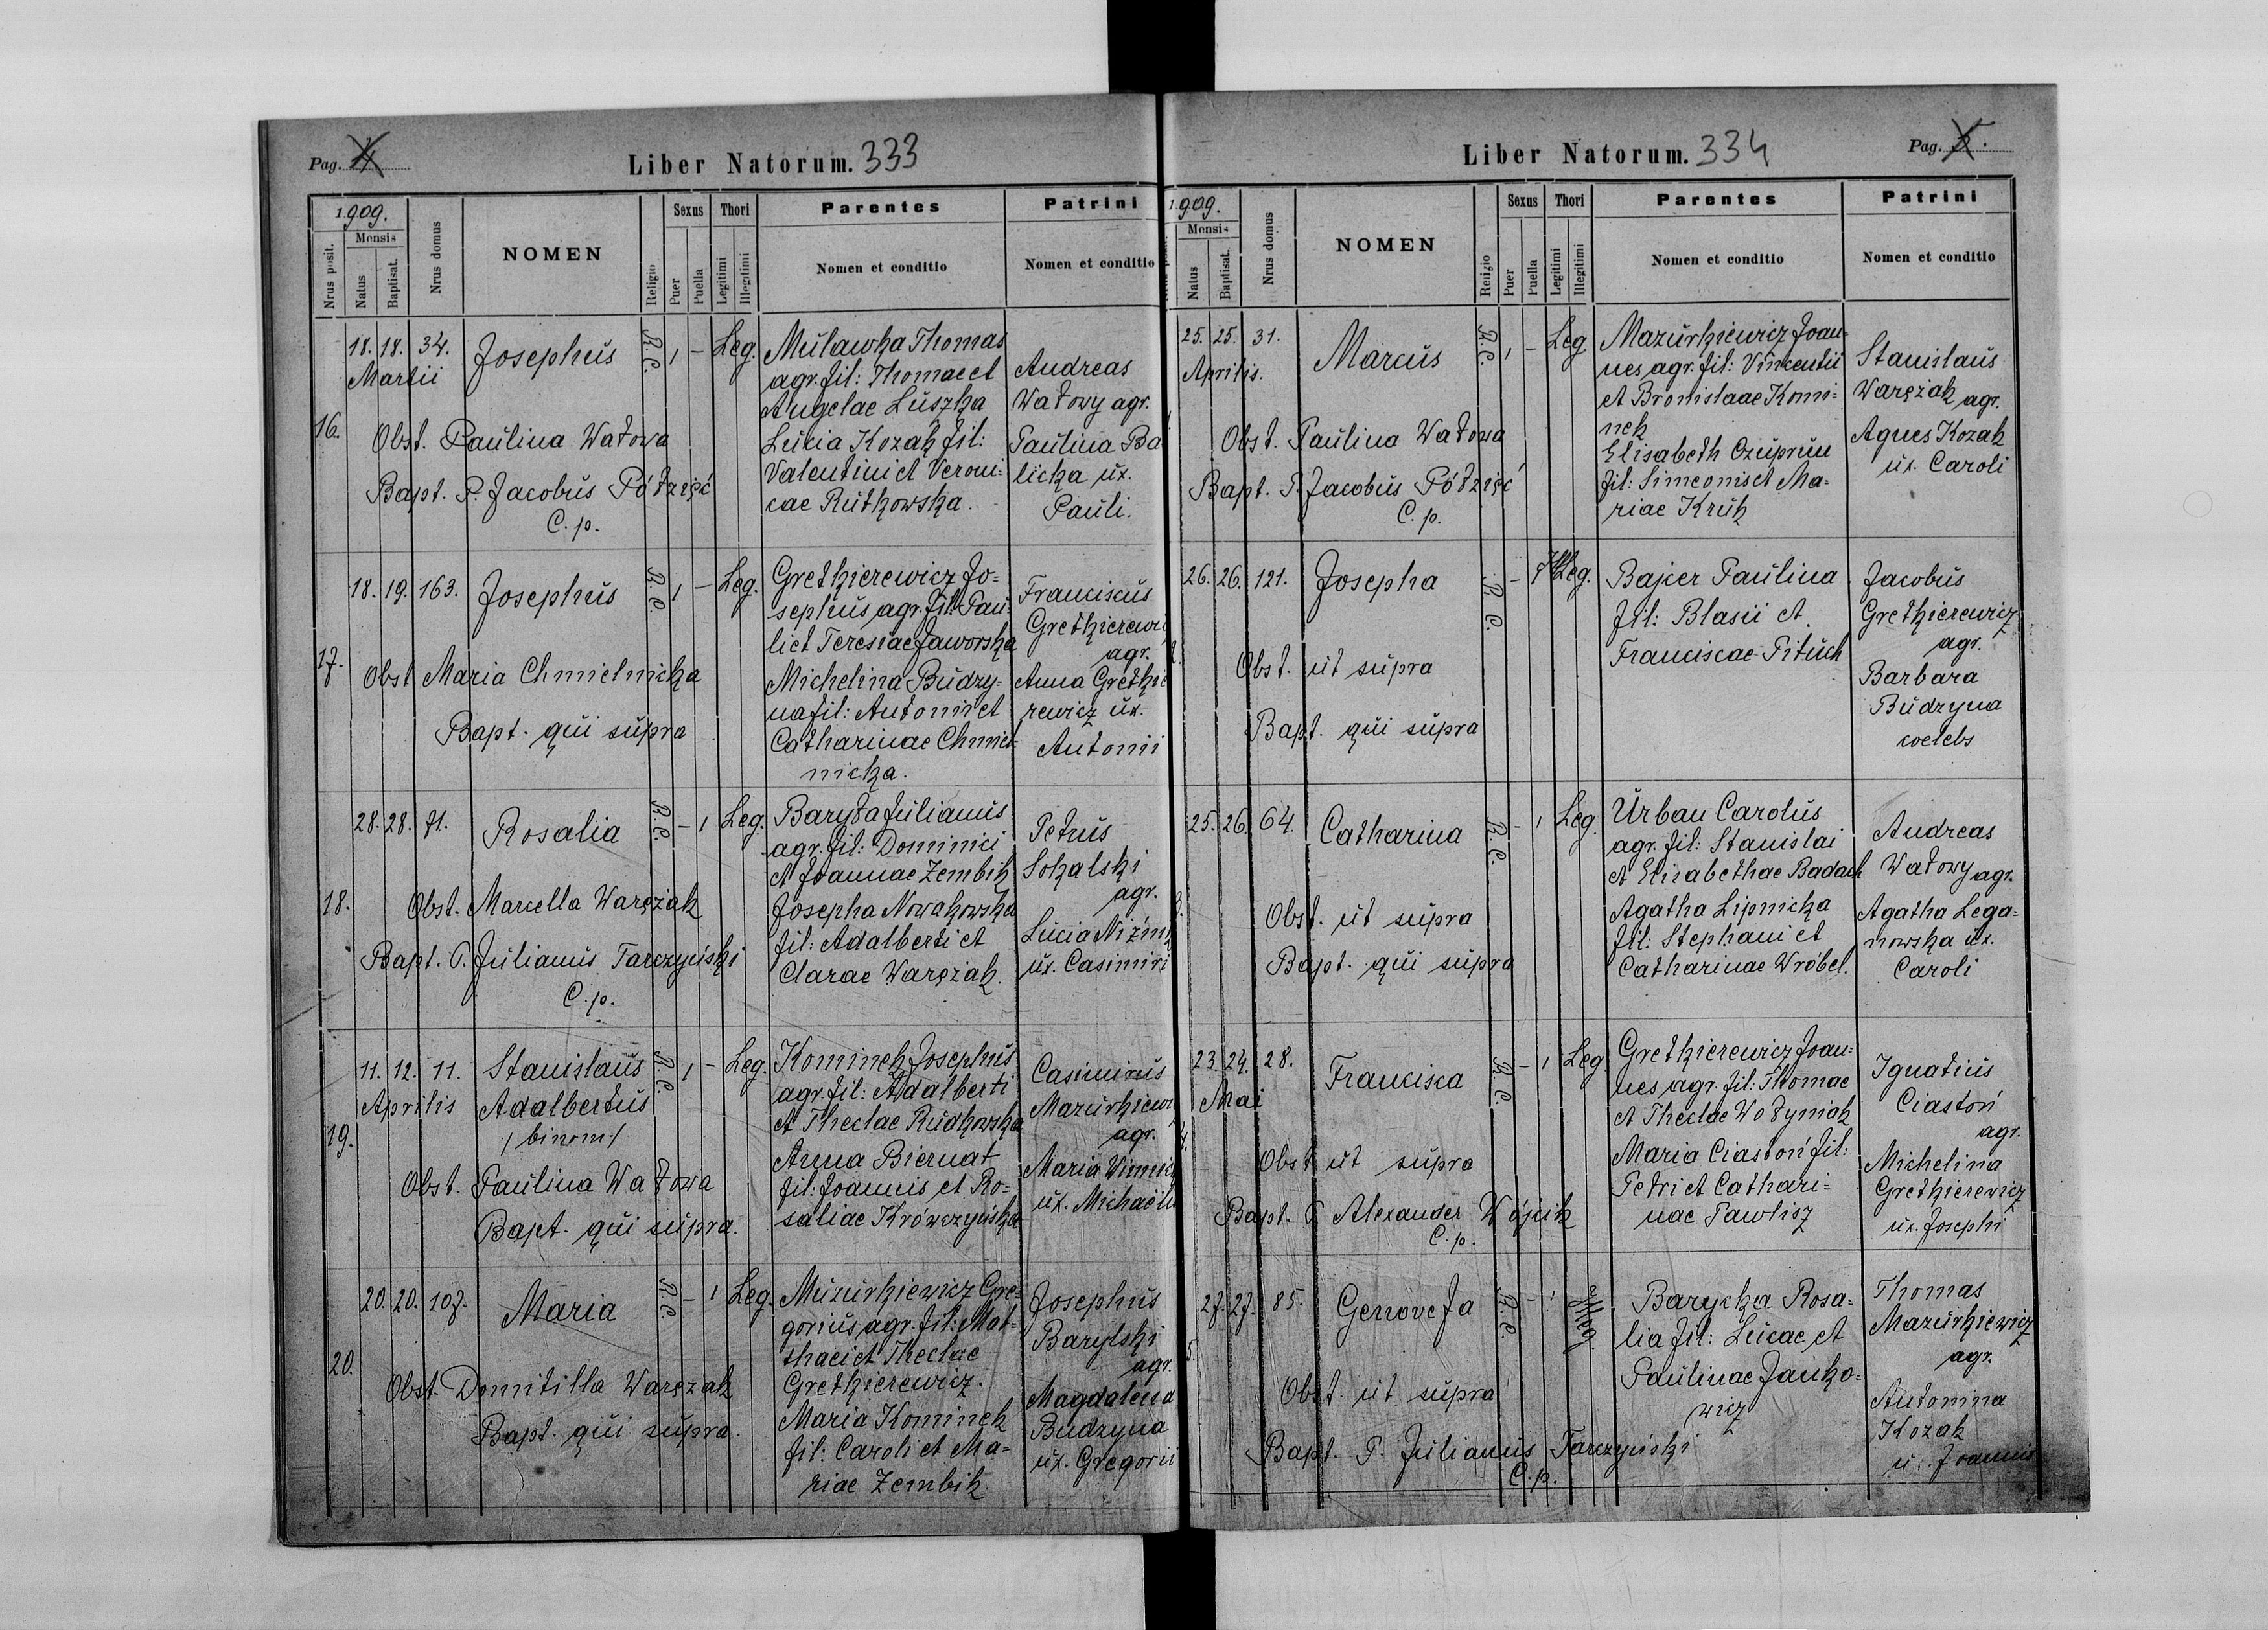 Pag. 4
Liber Natorum. 333
1909.
Mensis
Nrus posit.
Natus
Baptisat.
Nrus domus
NOMEN
Religio
Sexus
Puer
Puella
Thori
Legitimi
Illegitimi
Parentes
Nomen et conditio
Patrini
Nomen et conditio
16.
18. 18. 34.
Martii
Josephus
R. C.
1 – Leg.
Obst. Paulina Watowa
Bapt. P. Jacobus Półzięć
C. p.
Mulawka Thomas
agr. fil: Thomae et
Angelae Luszka
Lucia Kozak fil:
Valentini et Veroni-
cae Rutkowska.
Andreas
Watowy agr.
Paulina Ba
licka ux.
Pauli.
17.
18. 19. 163.
Josephus
R. C.
1 – Leg.
Obst Maria Chmielnicka
Bapt. qui supra
Gretkierewicz Jo=
sephus agr. fil: Pau-
li et Teresiae Jaworska
Michelina Budzy-
na fil: Antonii et
Catharinae Chmiel-
nicka.
Franciscus
Gretkierewi
agr.
Anna Gretkie
rewicz ux.
Antonii
18.
28. 28. 71.
Rosalia
R. C.
– 1 Leg.
Obst. Marcella Waręziak
Bapt. P. Julianus Tarczyński
C. p.
Baryła Julianus
agr. fil: Dominici
et Joannae Zembik
Josepha Nowakowska
fil: Adalberti et
Clarae Waręziak.
Petrus
Sokalski
agr.
Lucia Niżnik
ux. Casimiri
19.
11. 12. 11.
Aprilis
Stanislaus
Adalbertus
/binom/
R. C.
1 – Leg.
Obst. Paulina Watowa
Bapt. qui supra.
Kominek Josephus
agr. fil: Adalberti
et Theclae Rudkowska
Anna Biernat
fil: Joannis et Ro=
saliae Krówczyńska
Casimirus
Mazurkiewi
agr.
Maria Winnic
ux. Michaelis
20.
20. 20. 107.
Maria
R. C.
– 1 Leg.
Obst. Domitilla Waręzak
Bapt. qui supra.
Muzurkiewicz Gre-
gorius agr. fil: Mat-
thaei et Theclae
Gretkierewicz.
Maria Kominek
fil: Caroli et Ma=
riae Zembik
Josephus
Barylski
agr.
Magdalena
Budzyna
ux. Gregorii
Liber Natorum. 334
Pag. 5.
1909.
Mensis
Natus
Baptisat.
Nrus domus
NOMEN
Religio
Sexus
Puer
Puella
Thori
Legitimi
Illegitimi
Parentes
Nomen et conditio
Patrini
Nomen et conditio
25. 25. 31.
Aprilis.
Marcus
R. C.
1 – Leg
Obst. Paulina Watowa
Bapt. P. Jacobus Półzięć
C. p.
Mazurkiewicz Joan=
nes agr. fil: Vincentii
et Bronislaae Komi=
nek
Elisabeth Czuprun
fil: Simeonis et Ma=
riae Kruk
Stanislaus
Waręziak agr.
Agnes Kozak
ux. Caroli
26. 26. 121.
Josepha
R. C.
– 1 Leg.
Obst. ut supra
Bapt. qui supra
Bajcer Paulina
fil: Blasii et
Franciscae Pituch
Jacobus
Gretkierewicz
agr.
Barbara
Budzyna
coelebs
25. 26. 64.
Catharina
R. C.
– 1 Leg.
Obst. ut supra
Bapt. qui supra
Urban Carolus
agr. fil: Stanislai
et Elisabethae Badach
Agatha Lipnicka
fil: Stephani et
Catharinae Wróbel.
Andreas
Watowy agr.
Agatha Lega=
nowska ux.
Caroli
23. 24. 28.
Mai
Francisca
R. C.
– 1 Leg
Obst ut supra
Bapt. P. Alexander Wójcik
C. p.
Gretkierewicz Joan=
nes agr. fil: Thomae
et Theclae Wołyniak
Maria Ciastoń fil:
Petri et Cathari=
nae Pawlisz
Ignatius
Ciastoń
agr.
Michelina
Gretkierewicz
ux. Josephi
5.
27. 27. 85.
Genovefa
R. C.
– 1 Illeg.
Obst. ut supra
Bapt. P. Julianus Tarczyński
C. p.
Barycka Rosa=
lia fil: Lucae et
Paulinae Janko=
wicz
Thomas
Mazurkiewicz
agr.
Antonina
Kozak
ux. Joannis